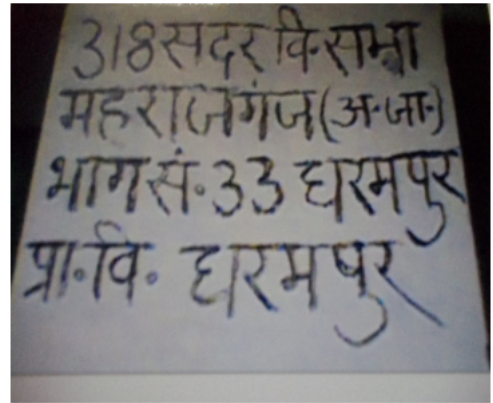 318 सदर वि.सभा
महराजगंज (अ.जा.)
भाग सं. 33 धरमपुर
प्रा.वि. धरमपुर